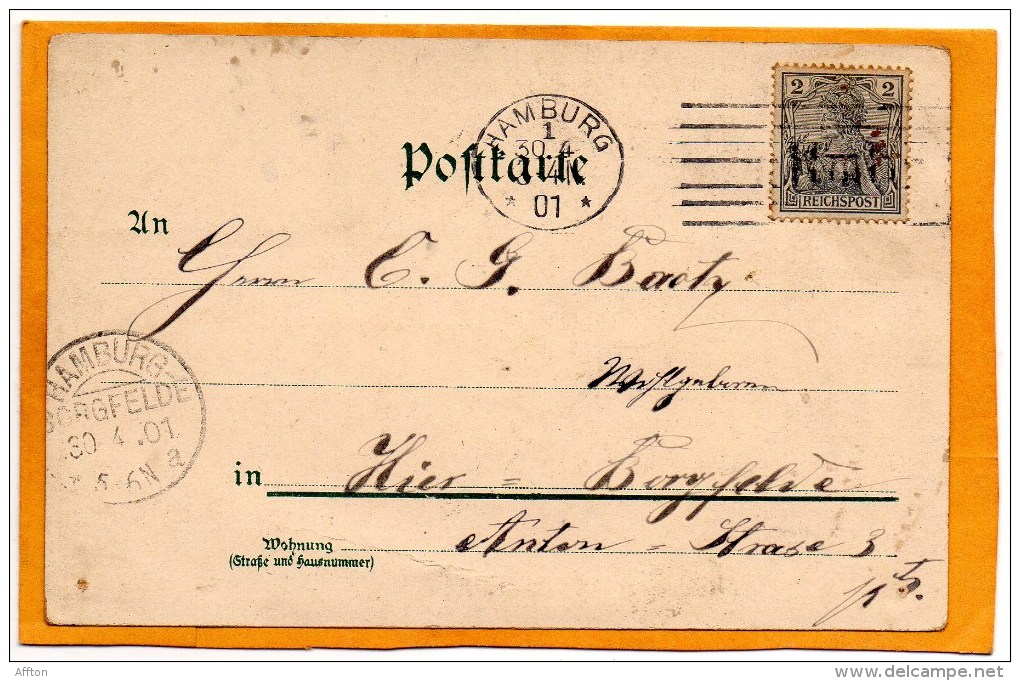 HAMBURG
1
30.4
01
2 2
REICHSPOST
Postkarte
An
Herrn C. G. Baatz
Wohlgeboren
HAMBURG-
BORGFELDE
30.4.01
5-6N a
in Hier = Borgfelde
Wohnung Anton = Strase 3
(Straße und Hausnummer)
Affton
www.delcampe.net